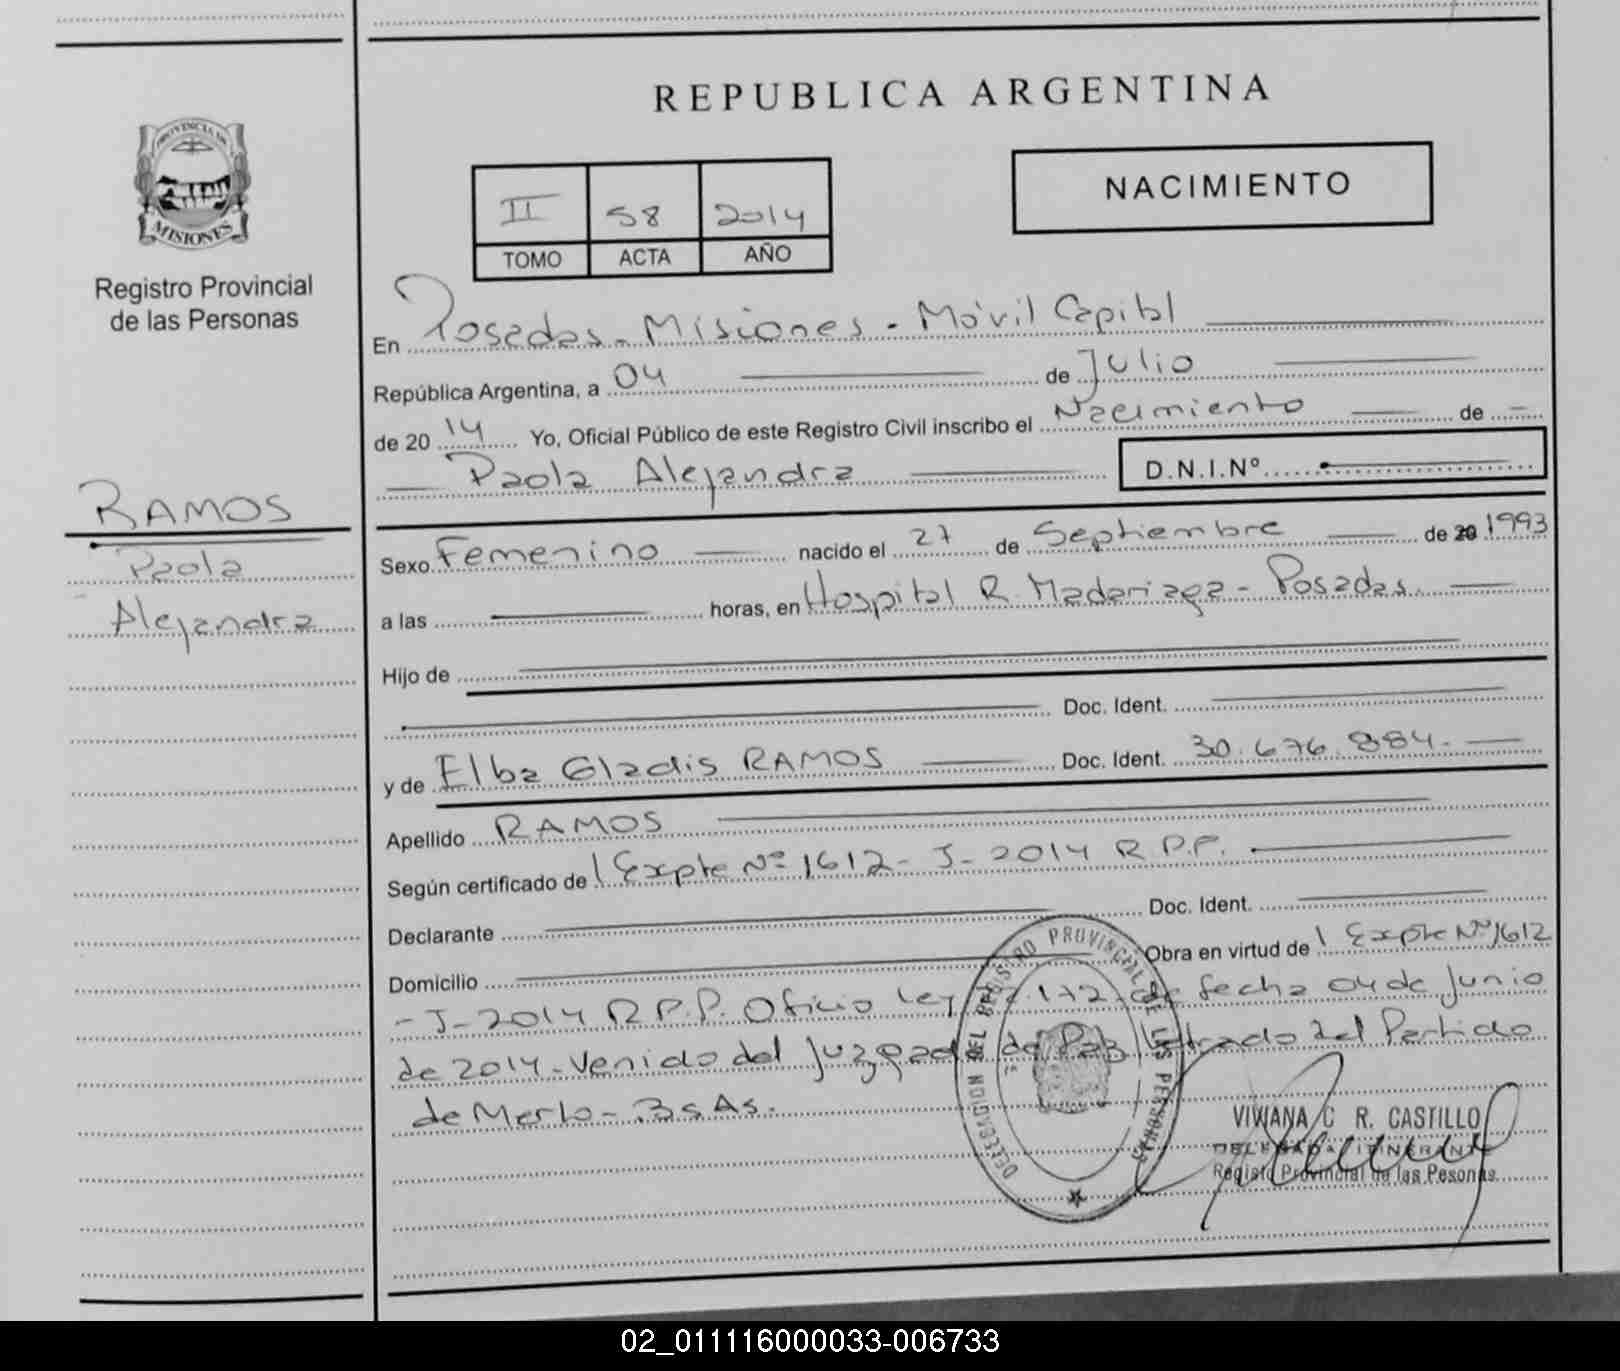 REPUBLICA ARGENTINA
PROVINCIA DE
MISIONES
Registro Provincial
de las Personas
II 58 2014
TOMO ACTA AÑO
NACIMIENTO
En Posadas - Misiones - Móvil Capital
República Argentina, a 04 de Julio
de 2014 Yo, Oficial Público de este Registro Civil inscribo el Nacimiento de
Paola Alejandra D.N.I.Nº
RAMOS
Paola
Alejandra
Sexo Femenino nacido el 27 de Septiembre de 20 1993
a las horas, en Hospital R. Madariaga - Posadas
Hijo de
Doc. Ident.
y de Elba Gladis RAMOS Doc. Ident. 30.676.884.
Apellido RAMOS
Según certificado de Expte Nº 1612 - J - 2014 R.P.P.
Declarante Doc. Ident.
Domicilio Obra en virtud de Expte Nº 1612
- J - 2014 R.P.P. Oficio Ley 22.172 de fecha 04 de Junio
de 2014 - Venido del Juzgado de Paz Letrado del Partido
de Merlo - Bs As.
DELEGACION DEL REGISTRO PROVINCIAL DE LAS PERSONAS
VIVIANA C R. CASTILLO
DELEGADA ITINERANTE
Registo Provincial de las Pesonas
02_011116000033-006733